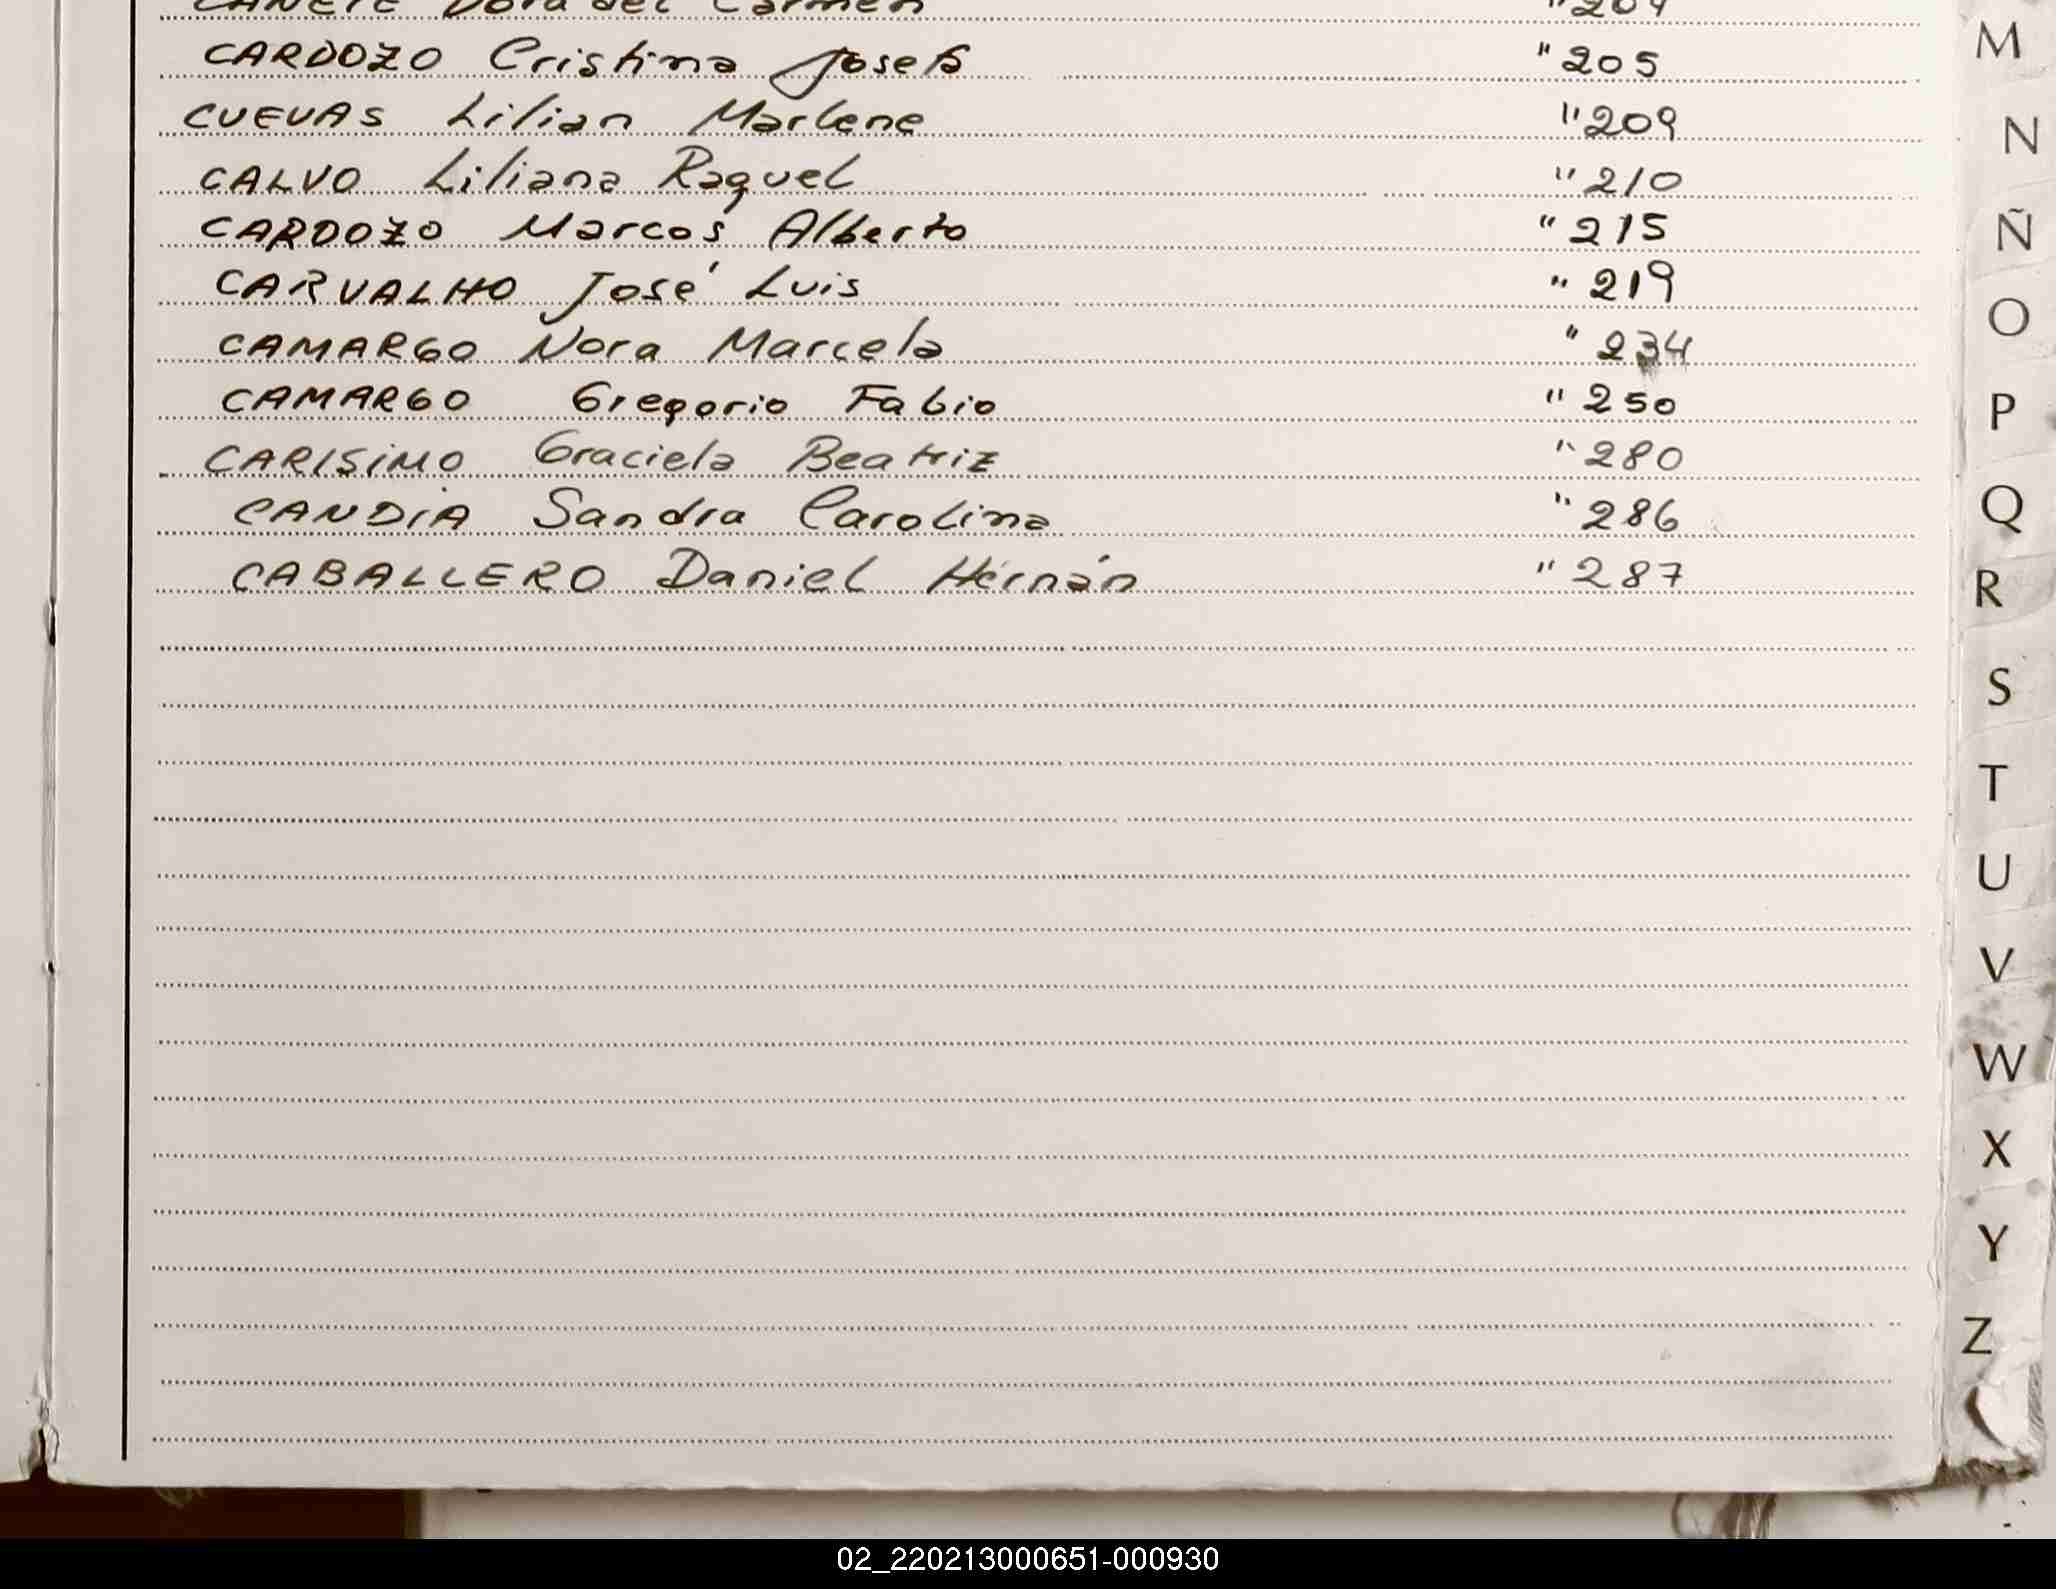 CAÑETE Dora del Carmen " 204
CARDOZO Cristina Josefa " 205
CUEVAS Lilian Marlene " 209
CALVO Liliana Raquel " 210
CARDOZO Marcos Alberto " 215
CARVALHO José Luis " 219
CAMARGO Nora Marcela " 234
CAMARGO Gregorio Fabio " 250
CARISIMO Graciela Beatriz " 280
CANDIA Sandra Carolina " 286
CABALLERO Daniel Hernán " 287
M
N
Ñ
O
P
Q
R
S
T
U
V
W
X
Y
Z
02_220213000651-000930